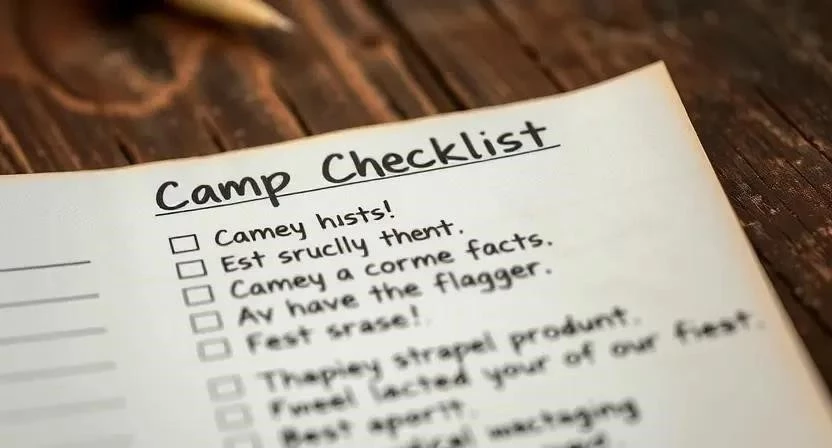 Camp Checklist
Camey hısts!
Est sruclly thent.
Camey a corme facts.
Av have the flagger.
Fest srase!
Thapiey strapel produnt.
Fweel lacted your of our fiest.
Best aporit.
mactaging